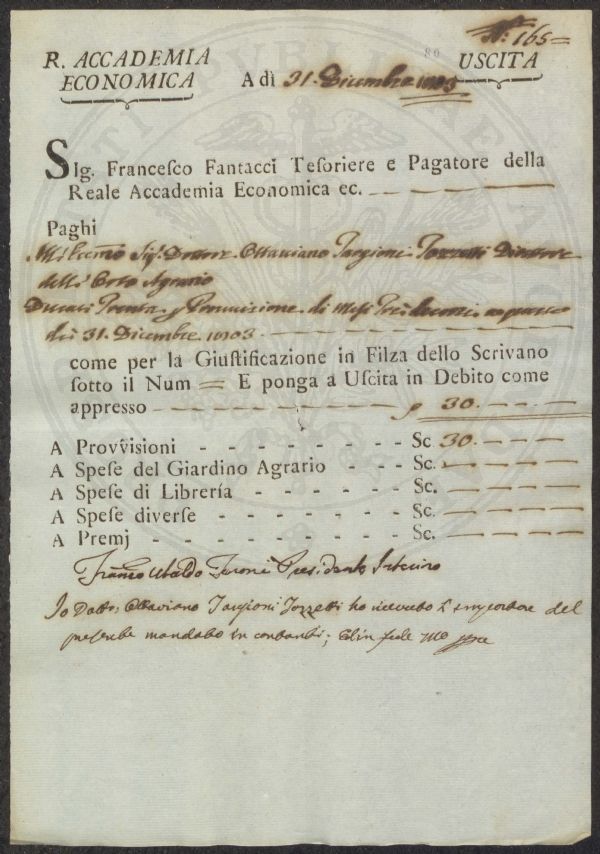 N.° 165=
80
R. ACCADEMIA ECONOMICA
USCITA
A dì 31. Dicembre 1803
SIg. Franceſco Fantacci Teſoriere e Pagatore della
Reale Accademia Economica ec.
Paghi
Sig.r Dottore Ottaviano Targioni Tozzetti Direttore
dell' Orto Agrario
Ducati Trenta Provvisione di Mesi Tre
dì 31. Dicembre 1803.
come per la Giuſtificazione in Filza dello Scrivano
ſotto il Num = E ponga a Uſcita in Debito come
appreſſo 30.
A Provviſioni - - - - - - - - Sc. 30.
A Speſe del Giardino Agrario - - - Sc.
A Speſe di Librería - - - - - - Sc.
A Speſe diverſe - - - - - - - - Sc.
A Premj - - - - - - - - - - Sc.
Franco Ubaldo Feroni Presidente Interino
Io Dottor Ottaviano Targioni Tozzetti ho ricevuto l'importare del
presente mandato in contanti; ed in fede mo ppa